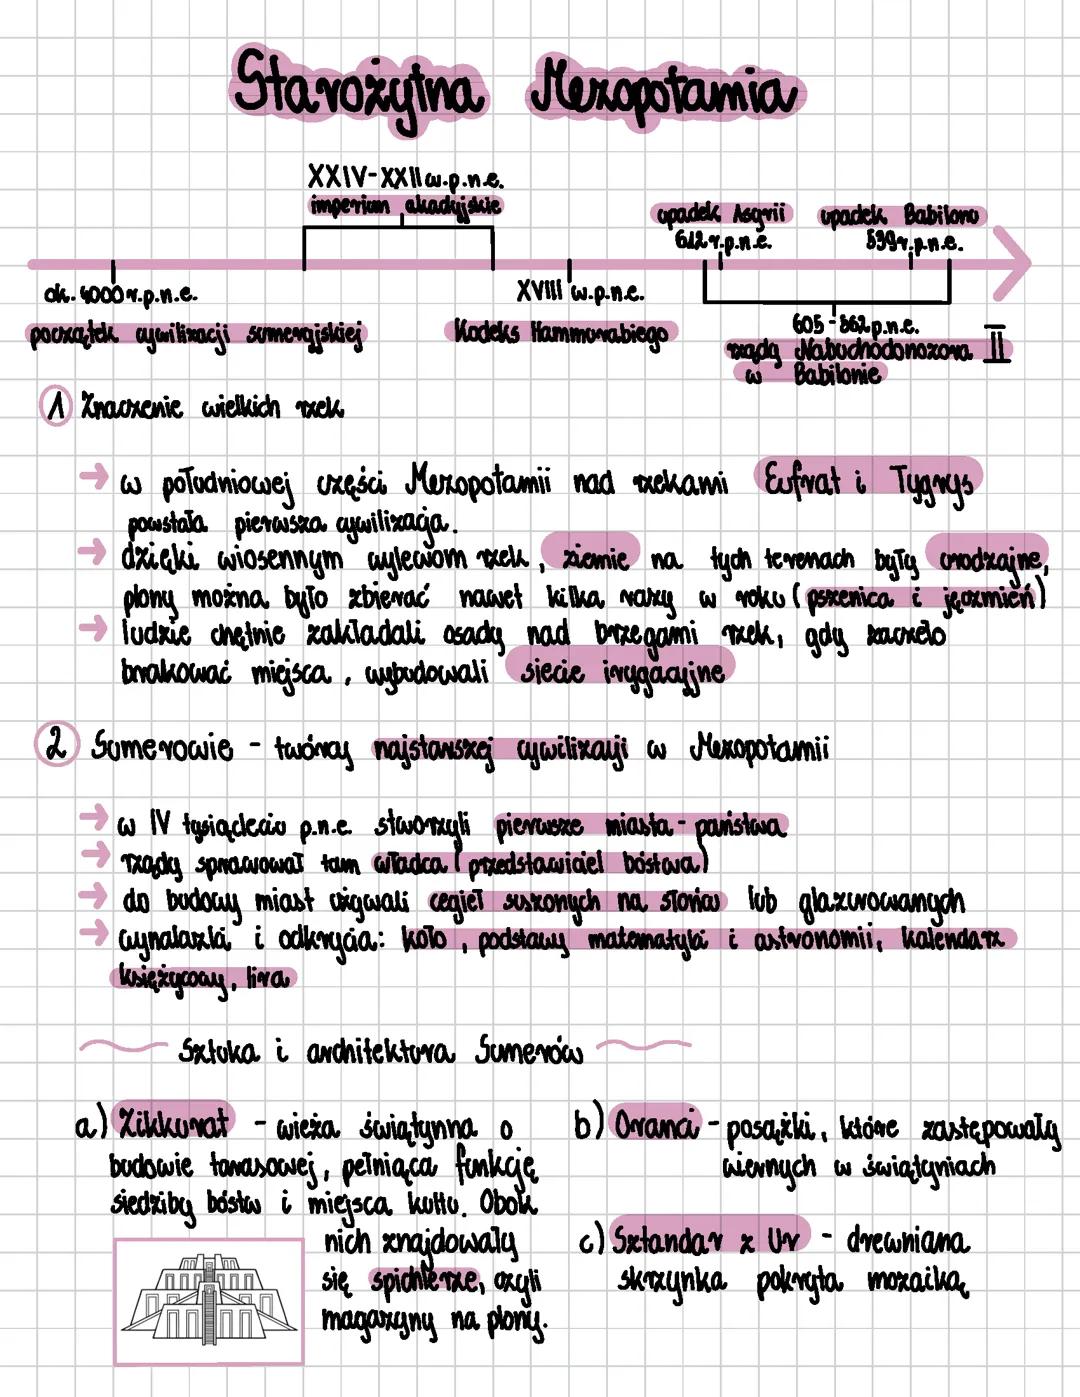 Starożytna Mezopotamia
XXIV-XXII w.p.n.e.
imperium akadyjskie
upadek Asyrii
612 r.p.n.e.
upadek Babilonu
539 r.p.n.e.
ok. 4000 r.p.n.e.
początek cywilizacji sumeryjskiej
XVIII w.p.n.e.
Kodeks Hammurabiego
605 - 562 p.n.e.
rządy Nabuchodonozora II
w Babilonie
1 Znaczenie wielkich rzek
→ w południowej części Mezopotamii nad rzekami Eufrat i Tygrys
powstała pierwsza cywilizacja.
→ dzięki wiosennym wylewom rzek, ziemie na tych terenach były urodzajne,
plony można było zbierać nawet kilka razy w roku (pszenica i jęczmień)
→ ludzie chętnie zakładali osady nad brzegami rzek, gdy zaczęło
brakować miejsca, wybudowali siecie irygacyjne
2 Sumerowie - twórcy najstarszej cywilizacji w Mezopotamii
→ w IV tysiącleciu p.n.e. stworzyli pierwsze miasta - państwa
→ rządy sprawował tam władca (przedstawiciel bóstwa)
→ do budowy miast używali cegieł suszonych na słońcu lub glazurowanych
→ wynalazki i odkrycia: koło, podstawy matematyki i astronomii, kalendarz
księżycowy, lira
Sztuka i architektura Sumerów
a) Zikkurat - wieża świątynna o
budowie tarasowej, pełniąca funkcję
siedziby bóstw i miejsca kultu. Obok
nich znajdowały
się spichlerze, czyli
magazyny na plony.
b) Oranci - posążki, które zastępowały
wiernych w świątyniach
c) Sztandar z Ur - drewniana
skrzynka pokryta mozaiką